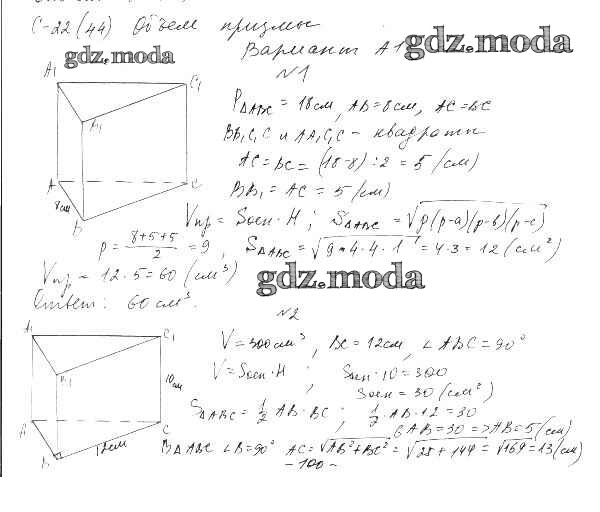 С-22 (44) Объем призмы
Вариант А1
gdz.moda
gdz.moda
№1
A1
C1
B1
A
C
B
8см
P△ABC = 18см, AB=8см, AC=BC
BB₁C₁C и AA₁C₁C – квадраты
AC=BC= (18-8):2 = 5 (см)
BB₁ = AC = 5 (см)
Vпр = Sосн·H ; S△ABC = √p(p-a)(p-b)(p-c)
p = (8+5+5)/2 = 9 , S△ABC = √9·4·4·1 = 4·3 = 12 (см²)
Vпр = 12·5=60 (см³)
Ответ: 60см³.
gdz.moda
№2
A1
C1
B1
10см
A
C
B
12см
V=300см³, BC=12см, ∠ABC=90°
V=Sосн·H ; Sосн·10=300
Sосн=30 (см²)
S△ABC = 1/2 AB·BC ; 1/2·AB·12=30
6AB=30 =>AB=5(см)
В△ABC ∠B=90° AC=√AB²+BC² = √25+144 = √169=13(см)
-100-